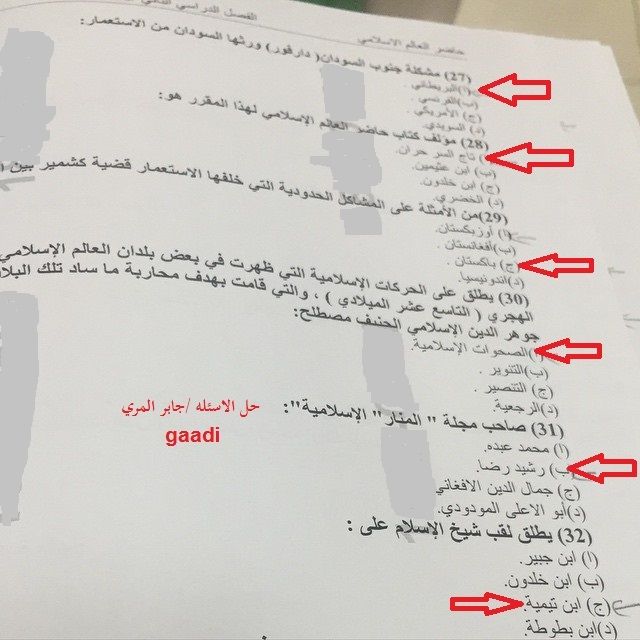 حاضر العالم الاسلامي
الفصل الدراسي الثاني
(27) مشكلة جنوب السودان( دارفور) ورثها السودان من الاستعمار:
ا)البريطاني .
ب)الفرنسي .
ج) الأمريكي .
د) السويدي.
(28) مؤلف كتاب حاضر العالم الإسلامي لهذا المقرر هو:
ا) تاج السر حران.
ب) ابن عثيمين.
ج) ابن خلدون.
د) الخضري.
(29)من الأمثلة على المشاكل الحدودية التي خلفها الاستعمار قضية كشمير بين
ا) اوزبكستان.
ب)أفغانستان .
ج) باكستان .
د)اندونيسيا.
(30) يطلق على الحركات الإسلامية التي ظهرت في بعض بلدان العالم الإسلامي
الهجري ( التاسع عشر الميلادي ) ، والتي قامت بهدف محاربة ما ساد تلك
جوهر الدين الإسلامي الحنيف مصطلح:
ا)الصحوات الإسلامية.
ب)التنوير .
ج) التنصير .
د)الرجعية.
(31) صاحب مجلة " المنار" الإسلامية":
ا) محمد عبده.
ب) رشيد رضا.
ج) جمال الدين الافغاني
د)أبو الاعلى المودودي.
(32) يطلق لقب شيخ الإسلام على :
ا) ابن جبير.
ب) ابن خلدون.
ج) ابن تيمية.
د)ابن بطوطة.
حل الاسئله /جابر المري
gaadi